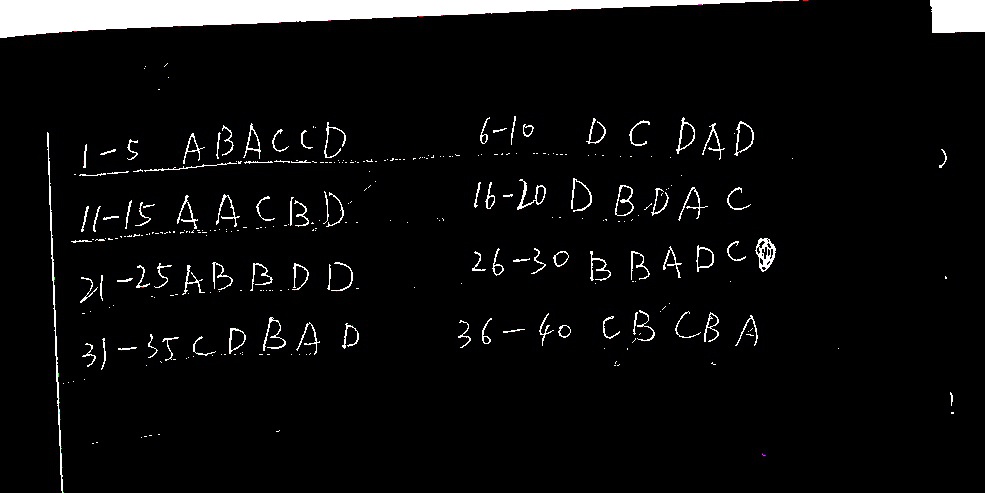 1-5 ABACCD 6-10 DCDAD
11-15 AACBD 16-20 DBDAC
21-25 ABBDD 26-30 BBADC
31-35 CDBAD 36-40 CBCBA